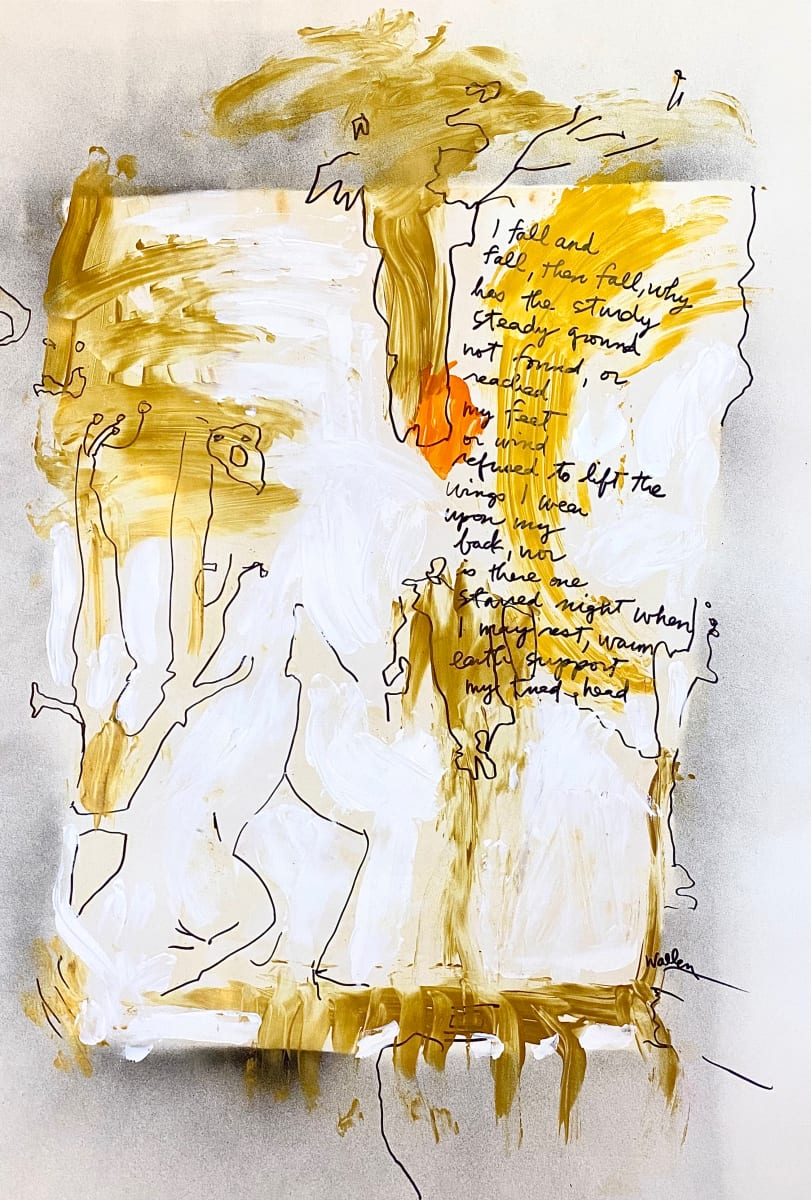 I fall and
fall, then fall, why
has the sturdy
steady ground
not found, or
reached
my feet
or wind
refused to lift the
wings I wear
upon my
back, nor
is there one
starred night when
I may rest, warm
earth support
my tired, head
Wallen